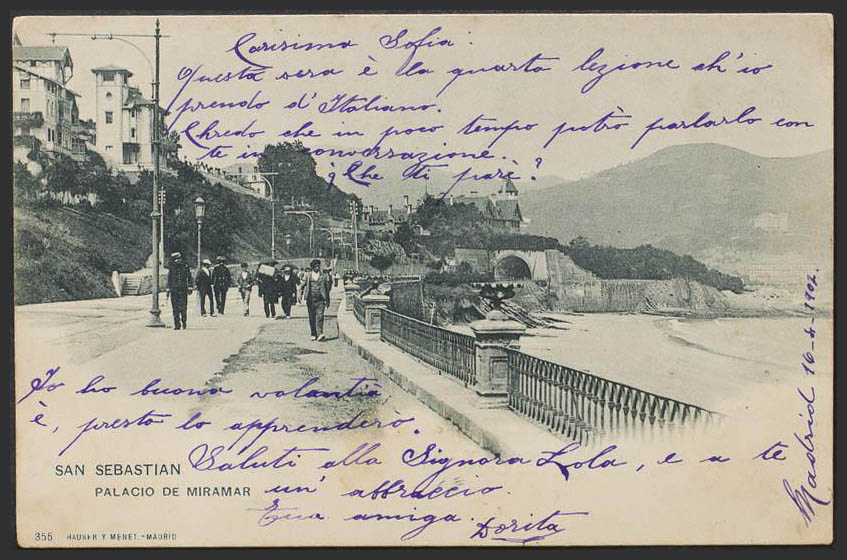 Carisima Sofia:
Questa sera è la quarta lezione ch'io
prendo d'Italiano.
Chredo che in poco tempo potrò parlarlo con
te in conversazione.
¿Che ti parè?
Io ho buona volantia
è, presto lo apprenderò.
Saluti alla Signora Lola, e a te
un' abbraccio.
Tua amiga.
Dorita
Madrid 16-6-1902.
SAN SEBASTIAN
PALACIO DE MIRAMAR
355 HAUSER Y MENET.-MADRID